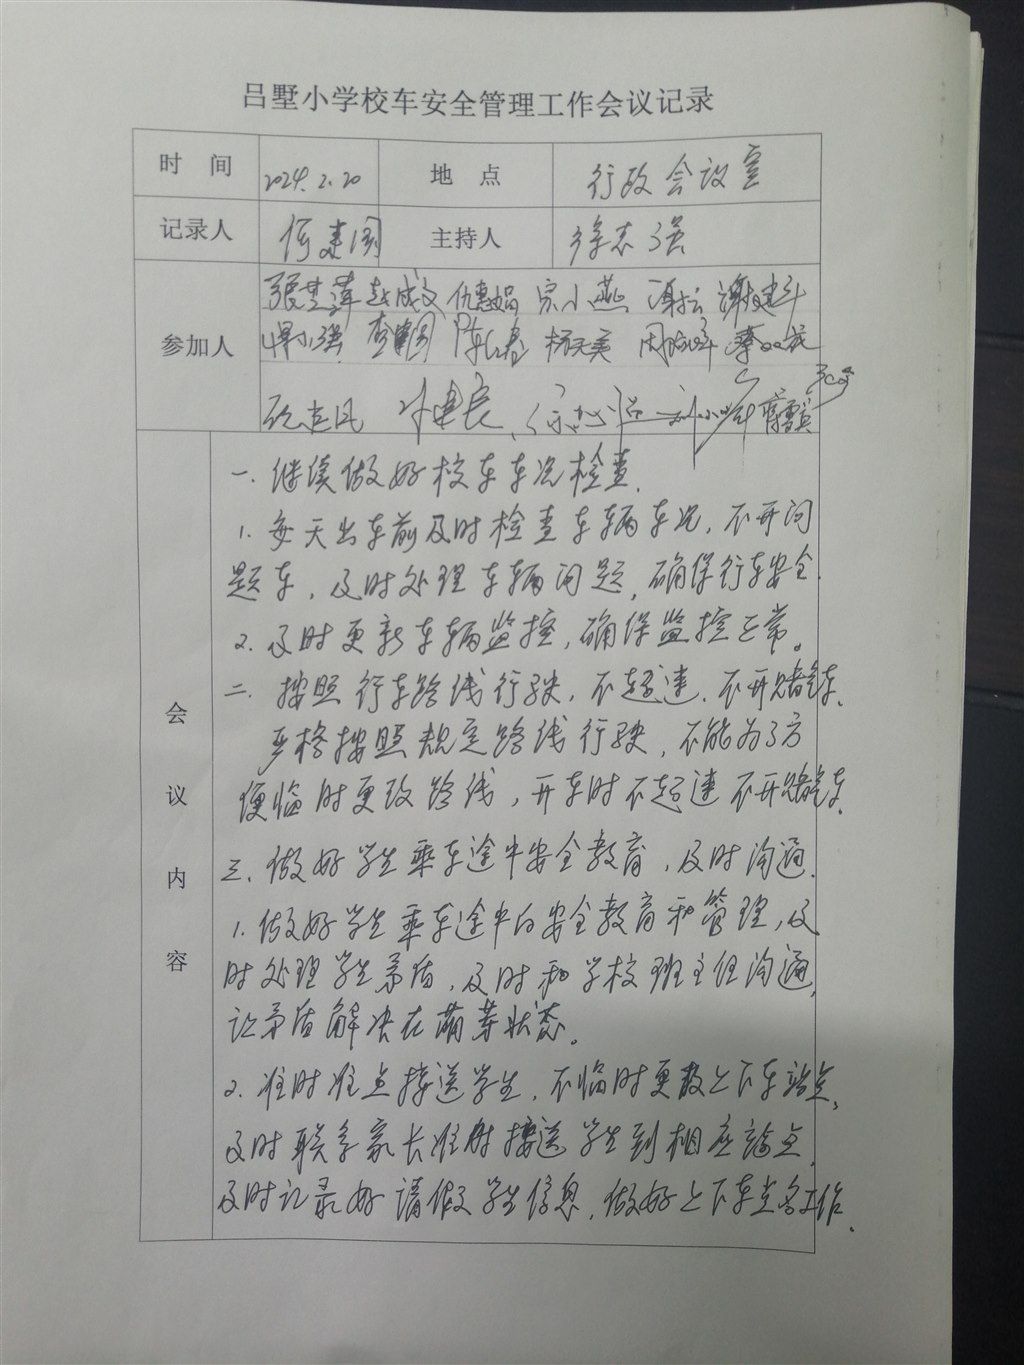 吕墅小学校车安全管理工作会议记录
时 间 2024.2.20 地 点 行政会议室
记录人 何建国 主持人 徐志强
参加人
仇惠娟 宗小燕
杨天英
会议内容
一.继续做好校车车况检查.
1.每天出车前及时检查车辆车况,不开问
题车,及时处理车辆问题,确保行车安全.
2.及时更新车辆监控,确保监控正常。
二.按照行车路线行驶,不超速.不开赌气车.
严格按照规定路线行驶,不能为了方
便临时更改路线,开车时不超速不开赌气车.
三.做好学生乘车途中安全教育,及时沟通.
1.做好学生乘车途中的安全教育和管理,及
时处理学生矛盾,及时和学校班主任沟通,
让矛盾解决在萌芽状态。
2.准时准点接送学生,不临时更改上下车站点,
及时联系家长准时接送学生到相应站点,
及时记录好请假学生信息,做好上下车点名工作.